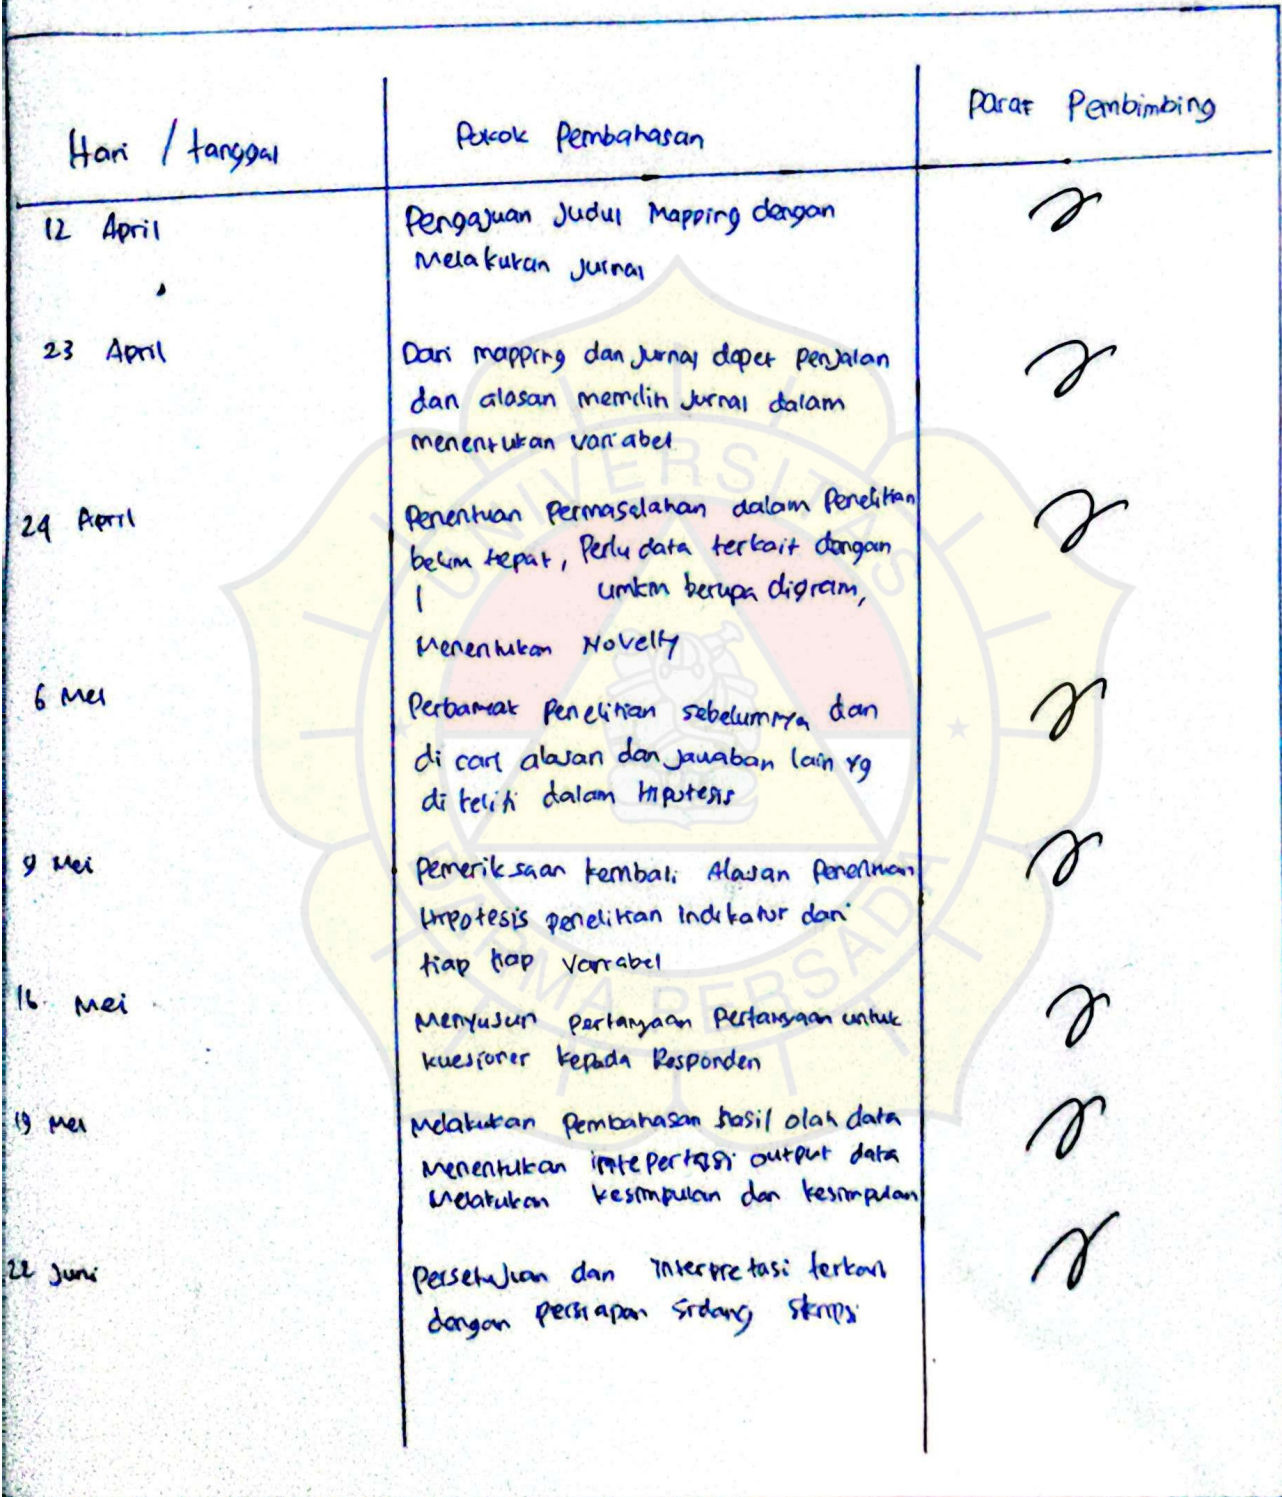 Hari / tanggal
Pokok Pembahasan
Paraf Pembimbing
12 April
Pengajuan Judul Mapping dengan
Melakukan Jurnal
23 April
Dari mapping dan Jurnal dapet penjalan
dan alasan memilih Jurnal dalam
menentukan variabel
24 April
Penentuan Permasalahan dalam Penelitian
belum tepat, Perlu data terkait dengan
umkm berupa digram,
Menentukan Novelty
6 Mei
Penelitian sebelumnya dan
di cari alasan dan Jawaban lain yg
di teliti dalam Hipotesis
9 Mei
Pemeriksaan kembali Alasan
Hipotesis penelitian Indikatur dari
tiap tiap Variabel
16 Mei
Menyusun pertanyaan Pertanyaan untuk
kuesioner kepada Responden
19 Mei
Melakukan Pembahasan hasil olah data
Menentukan output data
Melakukan kesimpulan dan kesimpulan
22 Juni
Persetujuan dan interpretasi terkait
dengan persiapan sidang skripsi
UNIVERSITAS
DARMA PERSADA